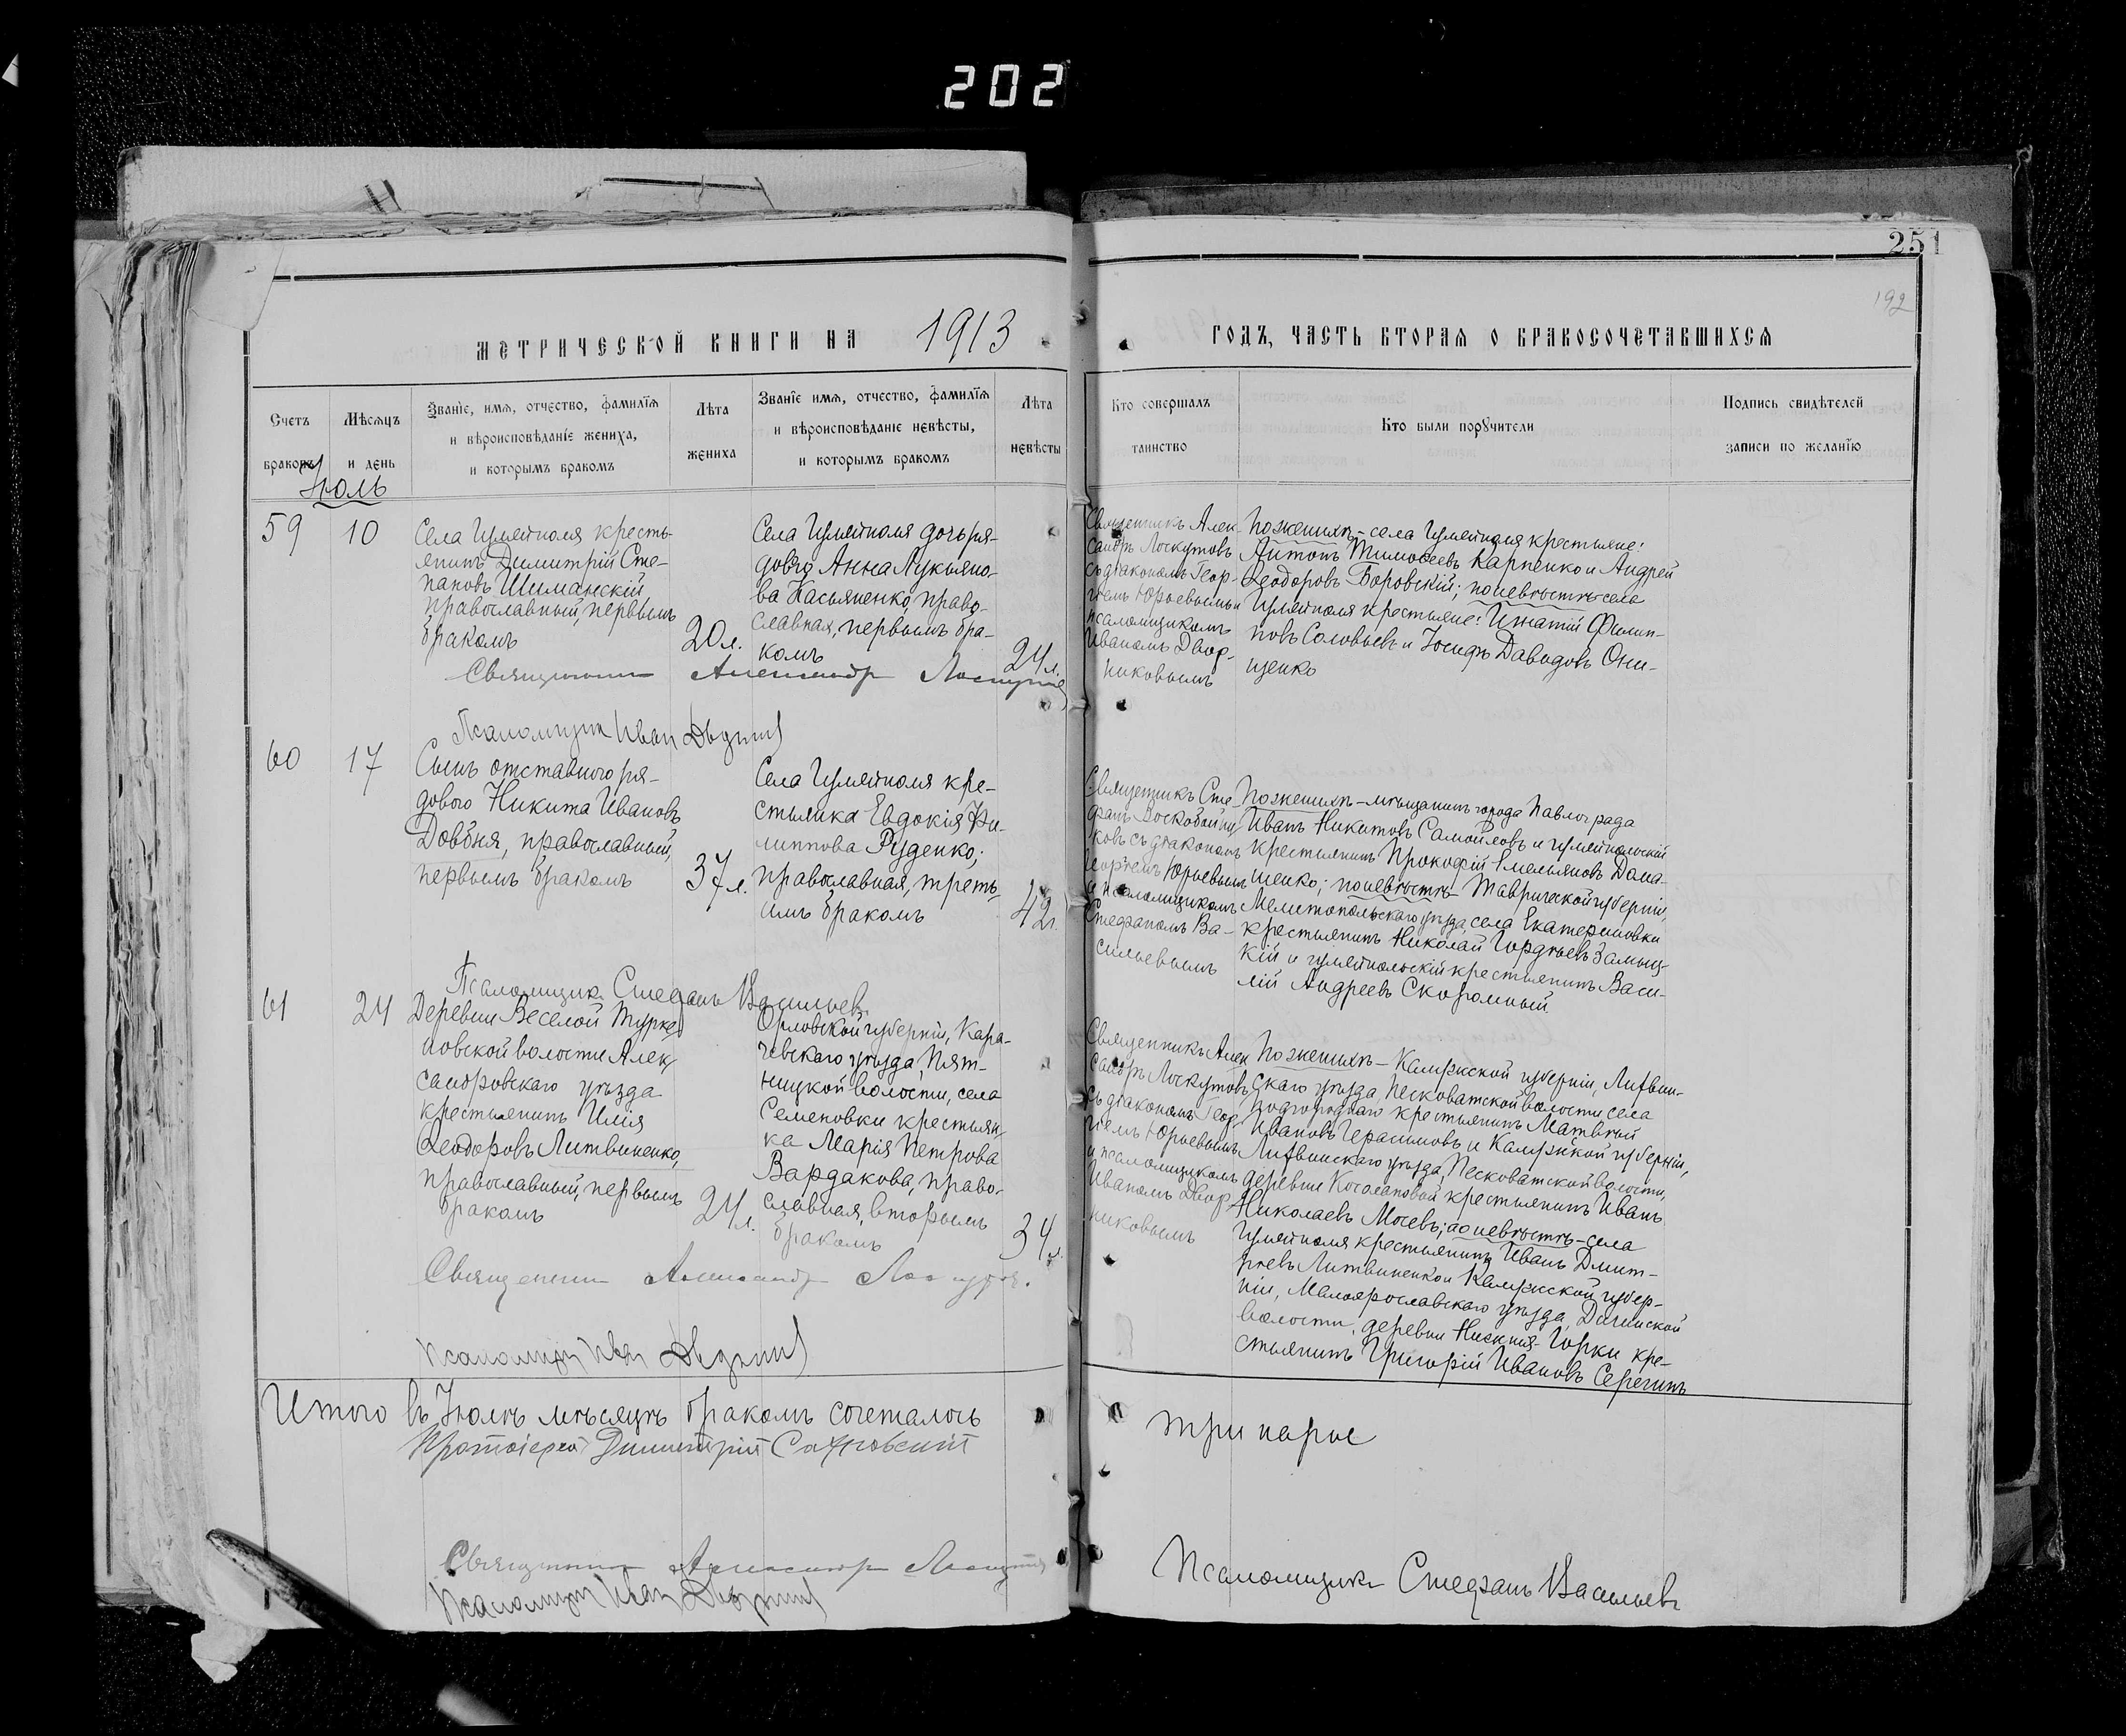 202
251
192
МЕТРИЧЕСКОЙ КНИГИ НА 1913
ГОДЪ, ЧАСТЬ ВТОРАЯ О БРАКОСОЧЕТАВШИХСЯ
Счетъ
браковъ
Мѣсяцъ
и день
Званїе, имя, отчество, фамилїя
и вѣроисповѣданїе жениха,
и которымъ бракомъ
Лѣта
жениха
Званїе имя, отчество, фамилїя
и вѣроисповѣданїе невѣсты,
и которымъ бракомъ
Лѣта
невѣсты
Кто совершалъ
таинство
Кто были порꙋчители
Подпись свидѣтелей
записи по желанїю
Іюль
59
10
Села Гуляйполя кресть-
янинъ Димитрій Сте-
пановъ Шиманскій,
православный, первымъ
бракомъ
20 л.
Села Гуляйполя дочь ря-
дового Анна Лукьяно-
ва Касьяненко, право-
славная, первымъ бра-
комъ
24 л.
Священникъ Алек-
сандръ Лоскутовъ
съ діакономъ Геор-
гіемъ Юрьевымъ и
псаломщикомъ
Иваномъ Двор-
никовымъ
По женихѣ - села Гуляйполя крестьяне:
Антонъ Тимоѳеевъ Карпенко и Андрей
Ѳеодоровъ Боровскій; по невѣстѣ - села
Гуляйполя крестьяне: Игнатій Филип-
повъ Соловьевъ и Іосифъ Давидовъ Они-
щенко
Священникъ Александръ Лоскутовъ
Псаломщик Иван Дворник
60
17
Сынъ отставного ря-
дового Никита Ивановъ
Довбня, православный,
первымъ бракомъ
37 л.
Села Гуляйполя кре-
стьянка Евдокія Фи-
липпова Руденко;
православная, треть-
имъ бракомъ
42 г.
Священникъ Сте-
фанъ Воскобойни-
ковъ съ діакономъ
Георгіемъ Юрьевымъ
и псаломщикомъ
Стефаномъ Ва-
сильевымъ
По женихѣ - мѣщанинъ города Павлограда
Иванъ Никитовъ Самойловъ и гуляйпольскій
крестьянинъ Прокофій Емельяновъ Дома-
шенко; по невѣстѣ - Таврической губерніи,
Мелитопольскаго уѣзда, села Екатериновки
крестьянинъ Николай Гордѣевъ Замыц-
кій и гуляйпольскій крестьянинъ Васи-
лій Андреевъ Скоромный
Псаломщикъ Стефанъ Васильевъ
61
24
Деревни Веселой Турке-
новской волости Алек-
сандровскаго уѣзда
крестьянинъ Илія
Ѳеодоровъ Литвиненко,
православный, первымъ
бракомъ
24 л.
Орловской губерніи, Кара-
чевскаго уѣзда, Пят-
ницкой волости, села
Семеновки крестьян-
ка Марія Петрова
Вардакова, право-
славная, вторымъ
бракомъ
34 л.
Священникъ Алек-
сандръ Лоскутовъ
съ діакономъ Геор-
гіемъ Юрьевымъ
и псаломщикомъ
Иваномъ Двор-
никовымъ
По женихѣ - Калужской губерніи, Лихвин-
скаго уѣзда, Песковатской волости села
Подгороднаго крестьянинъ Матвѣй
Ивановъ Герасимовъ и Калужской губерніи,
Лихвинскаго уѣзда, Песковатской волости,
деревни Косолаповой крестьянинъ Иванъ
Николаевъ Мосевъ; по невѣстѣ - села
Гуляйполя крестьянинъ Иванъ Дмит-
ріевъ Литвиненко и Калужской губер-
ніи, Малоярославскаго уѣзда,
волости, деревни Нижнія-Горки кре-
стьянинъ Григорій Ивановъ Серегинъ
Священникъ Александръ Лоскутовъ.
Псаломщикъ Иван Дворник
Итого въ Іюлѣ мѣсяцѣ бракомъ сочеталось
три пары
Протоіерей Димитрій Сахновскій
Священникъ Александръ Лоскутовъ
Псаломщикъ Иван Дворник
Псаломщикъ Стефанъ Васильевъ